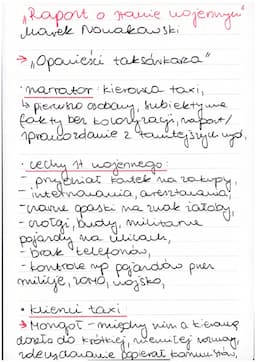 "Raport o stanie wojennym"
Marek Nowakowski
→ "Opowieści taksówkarza"
• narrator: kierowca taxi,
↳ pierwszo osobowy, subiektywne
fakty bez koloryzacji, raport/
sprawozdanie z tamtejszych wyd.
• cechy st wojennego:
- przydział kartek na zakupy,
- internowania, aresztowania,
- czarne opaski na znak żałoby,
- czołgi, budy, militarne
pojazdy na ulicach,
- brak telefonów,
- kontrole np pojazdów przez
milicję, zomo, wojsko,
• klienci taxi
→ Mongoł - między nim a kierowcą
doszło do krótkiej, niemiłej rozmowy,
zdecydowanie popierał komunistów,